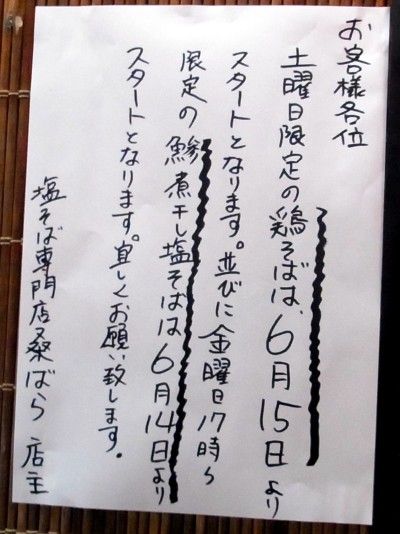 お客様各位
土曜日限定の鶏そばは、6月15日より
スタートとなります。並びに金曜日17時〜
限定の鯵煮干し塩そばは6月14日より
スタートとなります。宜しくお願い致します。
塩そば専門店桑ばら 店主